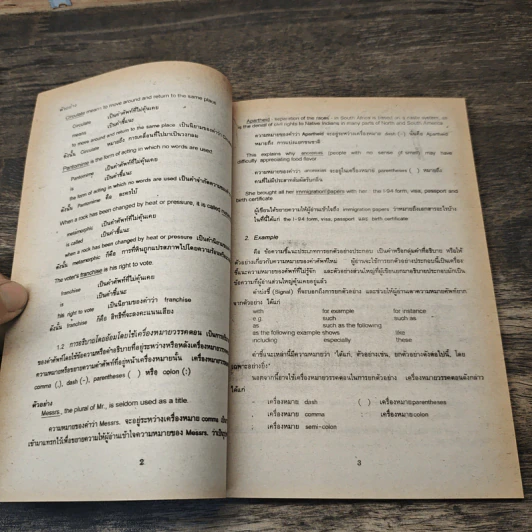 ตัวอย่าง
Circulate means to move around and return to the same place
Circulate เป็นคำศัพท์ที่ไม่คุ้นเคย
means เป็นคำชี้แนะ
to move around and return to the same place เป็นนิยามของคำว่า
ดังนั้น Circulate หมายถึง การเคลื่อนที่ไปมาเป็นวงกลม
Pantomime is the form of acting in which no words are used.
Pantomime เป็นคำศัพท์ที่ไม่คุ้นเคย
is เป็นคำชี้แนะ
the form of acting in which no words are used เป็นคำจำกัดความ
ดังนั้น Pantomime คือ ละครใบ้
When a rock has been changed by heat or pressure, it is called
metamorphic เป็นคำศัพท์ที่ไม่คุ้นเคย
is called เป็นคำชี้แนะ
when a rock has been changed by heat or pressure เป็นคำนิยาม
ดังนั้น metamorphic ก็คือ การที่หินถูกแปรสภาพไปโดยความร้อน
The voter's franchise is his right to vote.
franchise เป็นคำศัพท์ที่ไม่คุ้นเคย
is เป็นคำชี้แนะ
his right to vote เป็นนิยามของคำว่า franchise
ดังนั้น franchise ก็คือ สิทธิที่จะลงคะแนนเสียง
1.2 การอธิบายโดยอ้อมโดยใช้เครื่องหมายวรรคตอน เป็นการ
ของคำศัพท์โดยใช้ข้อความหรือคำอธิบายที่อยู่ระหว่างหรือหลังเครื่องหมายวรรค
ความหมายหรือขยายความคำศัพท์ที่อยู่หน้าเครื่องหมายนั้น เครื่องหมาย
comma (,), dash (-), parentheses ( ) หรือ colon (:)
ตัวอย่าง
Messrs., the plural of Mr., is seldom used as a title.
ความหมายของคำว่า Messrs. จะอยู่ระหว่างเครื่องหมาย comma
เข้ามาแทรกไว้เพื่อขยายความให้ผู้อ่านเข้าใจความหมายของ Messrs. ว่าเป็น
2
Apartheid - separation of the races - in South Africa is based on
is the denial of civil rights to Native Indians in many parts of North and South America
ความหมายของคำว่า Apartheid จะอยู่ระหว่างเครื่องหมาย dash (-) นั่นคือ Apartheid
หมายถึง การแบ่งแยกเชื้อชาติ
This explains why anosmics (people with no sense of smell) may have
difficulty appreciating food flavor
ความหมายของคำว่า anosmics จะอยู่ในเครื่องหมาย parentheses ( ) หมายถึง
She brought all her immigration papers with her : the I-94 form, visa, passport and
birth certificate
ผู้เขียนได้ขยายความให้ผู้อ่านเข้าใจถึง immigration papers ว่าหมายถึงเอกสารอะไรบ้าง
ในที่นี้ได้แก่ the I-94 form, visa, passport และ birth certificate
2. Example
คือ ข้อความชี้แนะประเภทการยกตัวอย่างประกอบ เป็นคำหรือกลุ่มคำที่อธิบาย หรือให้
ตัวอย่างเกี่ยวกับความหมายของคำศัพท์ใหม่ ผู้อ่านจะใช้การยกตัวอย่างประกอบนี้เป็นเครื่อง
ชี้แนะความหมายของศัพท์ที่ไม่รู้จัก และตัวอย่างส่วนใหญ่ที่ผู้เขียนยกมาอธิบายประกอบมักเป็น
ข้อความที่ผู้อ่านส่วนใหญ่คุ้นเคยอยู่แล้ว
คำบ่งชี้ (Signal) ที่จะบอกถึงการยกตัวอย่าง และช่วยให้ผู้อ่านเดาความหมายศัพท์ยาก
จากตัวอย่าง ได้แก่
with for example for instance
e.g. such such as
as such as the following
as the following example shows like
including especially these
คำชี้แนะเหล่านี้มีความหมายว่า "ได้แก่, ตัวอย่างเช่น, ยกตัวอย่างดังต่อไปนี้, โดย
เฉพาะอย่างยิ่ง"
นอกจากนี้อาจใช้เครื่องหมายวรรคตอนในการยกตัวอย่าง เครื่องหมายวรรคตอนดังกล่าว
ได้แก่
- เครื่องหมาย dash ( ) เครื่องหมายparentheses
, เครื่องหมาย comma : เครื่องหมายcolon
; เครื่องหมาย semi-colon
3